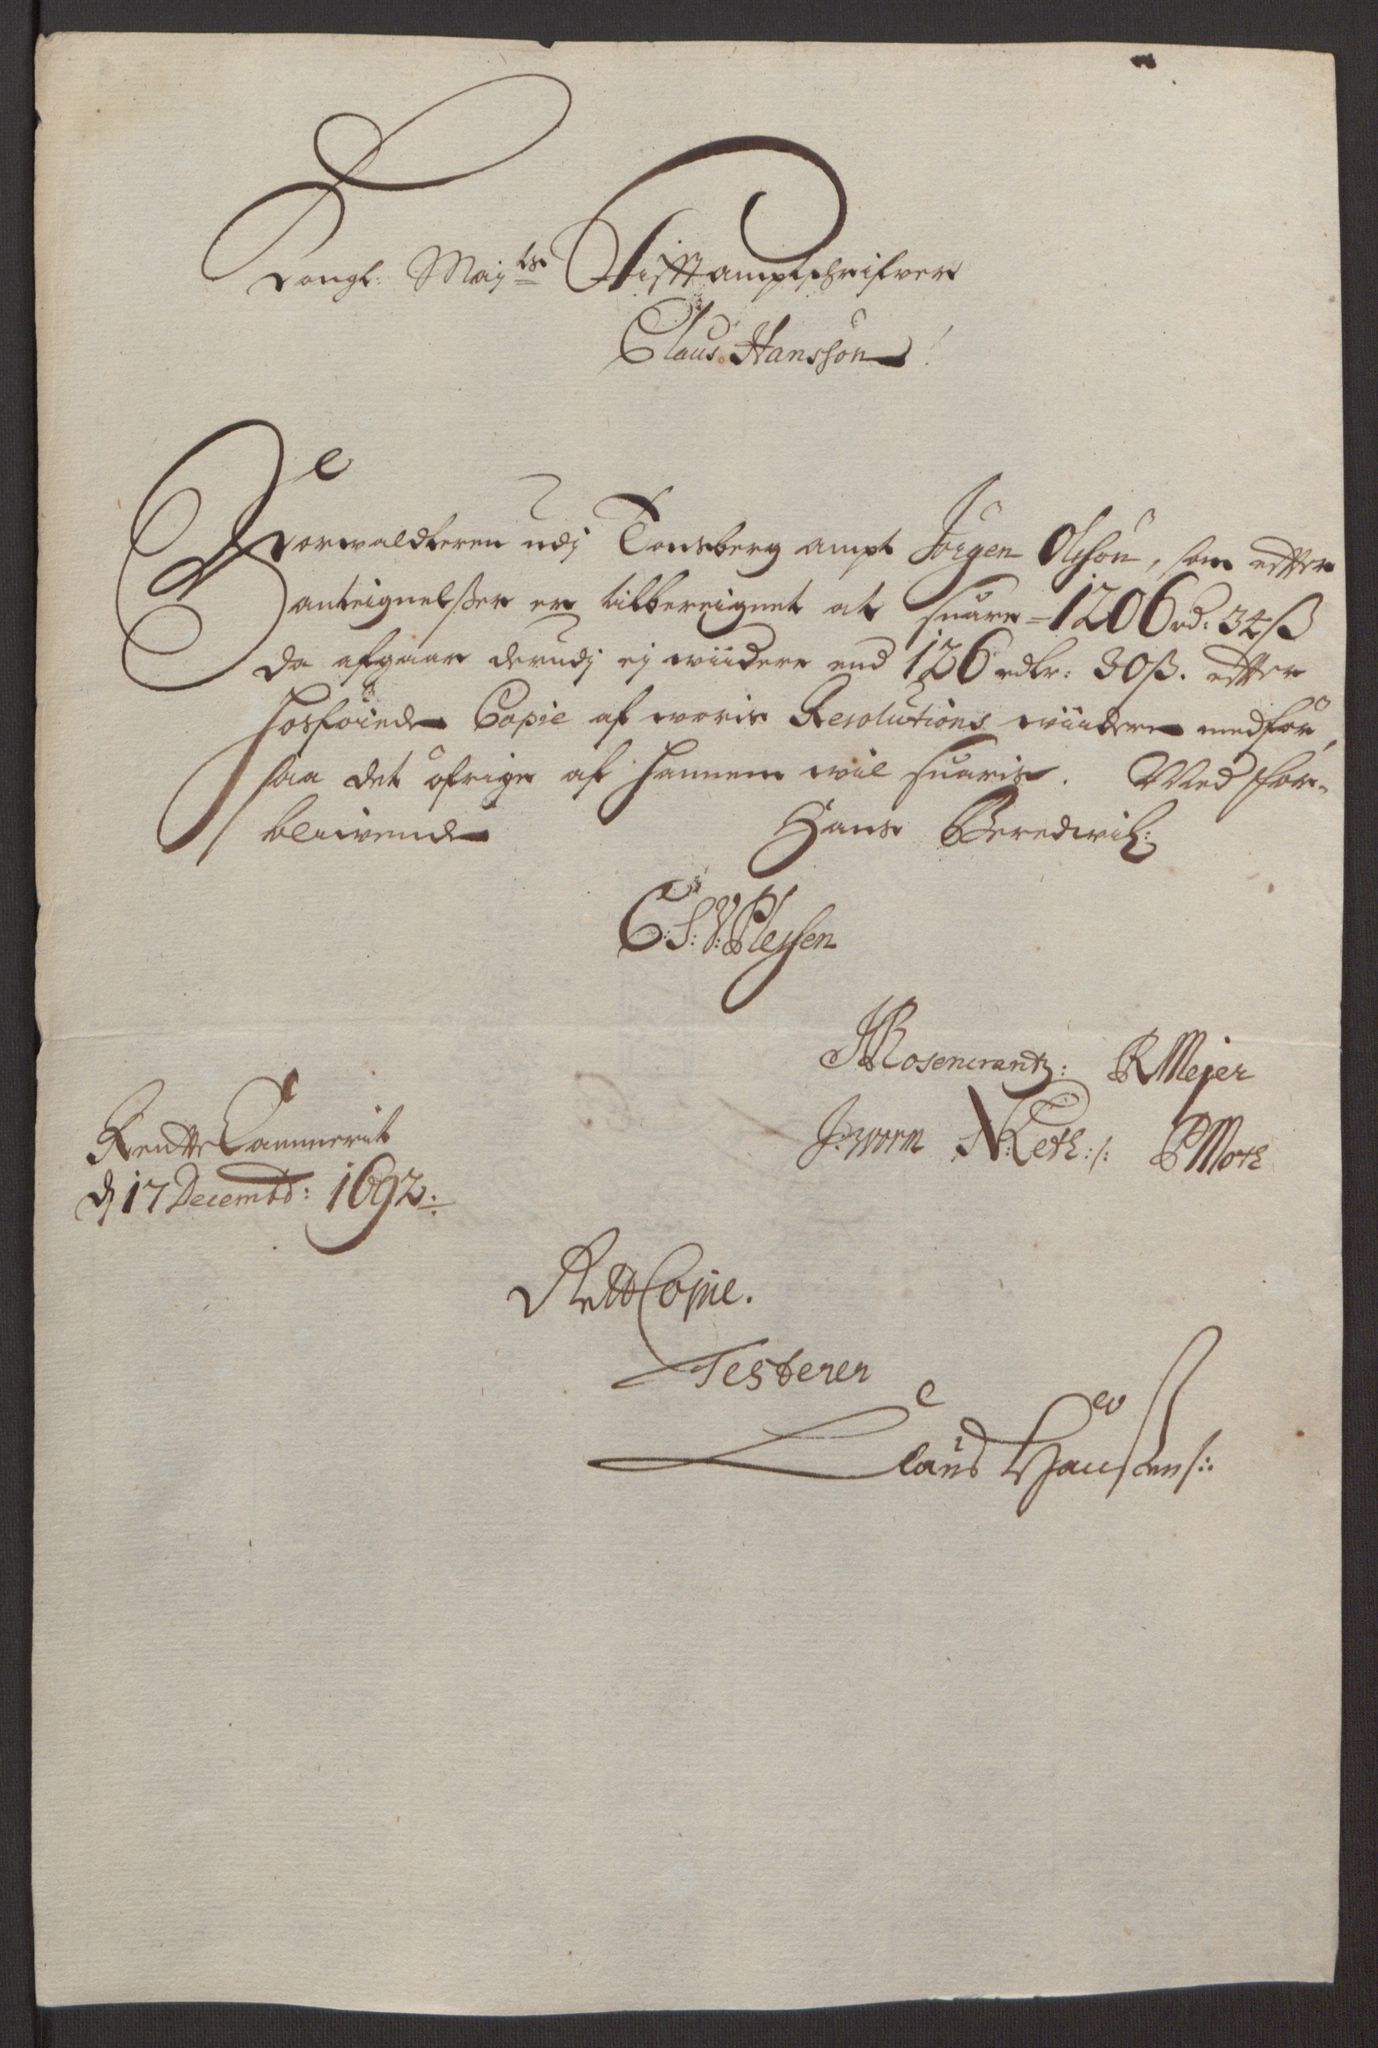 Kongl: Maÿtz Stifftamptschrifver
Claus Hanssön!
Forwalteren udj Tonsberg ampt Jörgen Olssön, som effter
anteignelsser er tilbereignet at suare = 1206 rd: 34 ß
da afgaar derudj ej wiidere end 126 rdlr: 30 ß. effter
hosföiede Copie af woris Resolutions wiidere medför,
saa det öfrige af hannem wil suaris. Med for-
blivende Hans Beredwil:
C: S: V: Plessen
Rosencrantz: R Meijer
J: Worm N: Leth :/: P Moth
Rentte Cammerit
dj 17 Decembd: 1692:
Rett Copie.
Testerer
Claus Hansen /: